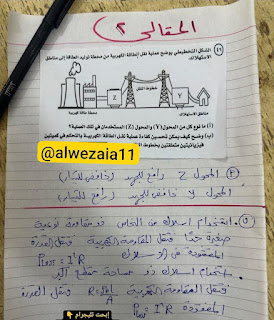 المقالى ٢
٤٦) الشكل التخطيطي يوضح عملية نقل الطاقة الكهربية من محطة توليد الطاقة إلى مناطق
الاستهلاك.
خطوط النقل
(Z)
(Y)
مناطق الاستهلاك
محطة طاقة كهربية
(أ) ما نوع كل من المحول (Y) والمحول (Z) المستخدمان في تلك العملية؟
(ب) وضح كيف يمكن تحسين كفاءة عملية نقل الطاقة الكهربية بالتحكم في كميتين
فيزيائيتين متعلقتين بخطوط
@alwezaia11
المحول Z رافع للجهد (خافض للتيار)
المحول Y خافض للجهد (رافع للتيار)
استخدام اسلاك من النحاس ذو مقاومة نوعية
صغيرة جدا فتقل المقاومة الكهربية فتقل القدرة
المفقودة في الاسلاك P = I²R
استخدام اسلاك ذو مساحة مقطع
فتقل المقاومة الكهربية R = وتقل القدرة
المفقودة I²R
إبحث تليجرام